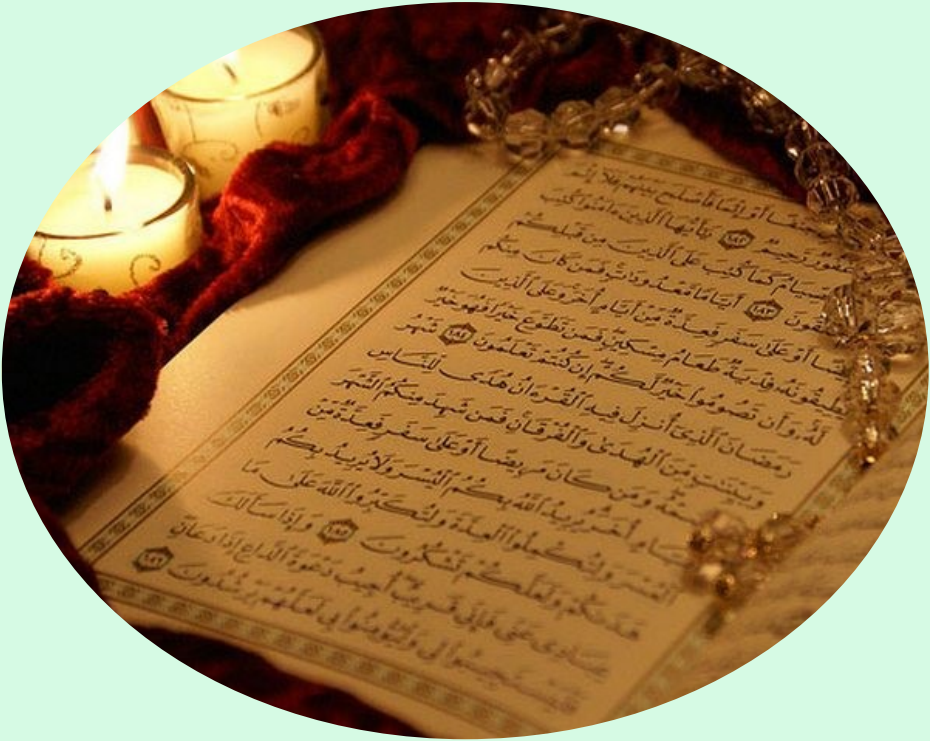 أَوْ إِثْمًا فَأَصْلَحَ بَيْنَهُمْ فَلَآ إِثْمَ
غَفُورٌ رَّحِيمٌ ١٨٢ يَٰٓأَيُّهَا ٱلَّذِينَ ءَامَنُوا۟ كُتِبَ
كَمَا كُتِبَ عَلَى ٱلَّذِينَ مِن قَبْلِكُمْ
١٨٣ أَيَّامًا مَّعْدُودَٰتٍ فَمَن كَانَ مِنكُم
أَوْ عَلَىٰ سَفَرٍ فَعِدَّةٌ مِّنْ أَيَّامٍ أُخَرَ وَعَلَى ٱلَّذِينَ
يُطِيقُونَهُۥ فِدْيَةٌ طَعَامُ مِسْكِينٍ فَمَن تَطَوَّعَ خَيْرًا فَهُوَ خَيْرٌ
لَّهُۥ وَأَن تَصُومُوا۟ خَيْرٌ لَّكُمْ إِن كُنتُمْ تَعْلَمُونَ ١٨٤ شَهْرُ
رَمَضَانَ ٱلَّذِىٓ أُنزِلَ فِيهِ ٱلْقُرْءَانُ هُدًى لِّلنَّاسِ
وَبَيِّنَٰتٍ مِّنَ ٱلْهُدَىٰ وَٱلْفُرْقَانِ فَمَن شَهِدَ مِنكُمُ ٱلشَّهْرَ
وَمَن كَانَ مَرِيضًا أَوْ عَلَىٰ سَفَرٍ فَعِدَّةٌ مِّنْ
أَيَّامٍ أُخَرَ يُرِيدُ ٱللَّهُ بِكُمُ ٱلْيُسْرَ وَلَا يُرِيدُ بِكُمُ
ٱلْعُسْرَ وَلِتُكْمِلُوا۟ ٱلْعِدَّةَ وَلِتُكَبِّرُوا۟ ٱللَّهَ عَلَىٰ مَا
هَدَىٰكُمْ وَلَعَلَّكُمْ تَشْكُرُونَ ١٨٥ وَإِذَا سَأَلَكَ
عِبَادِى عَنِّى فَإِنِّى قَرِيبٌ أُجِيبُ دَعْوَةَ ٱلدَّاعِ إِذَا دَعَانِ
فَلْيَسْتَجِيبُوا۟ لِى وَلْيُؤْمِنُوا۟ بِى لَعَلَّهُمْ يَرْشُدُونَ ١٨٦